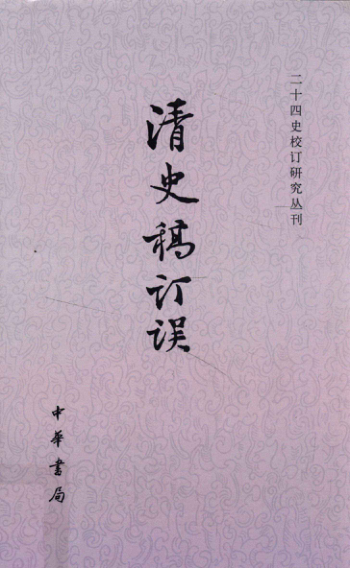 二十四史校订研究丛刊
清史稿订误
中华书局